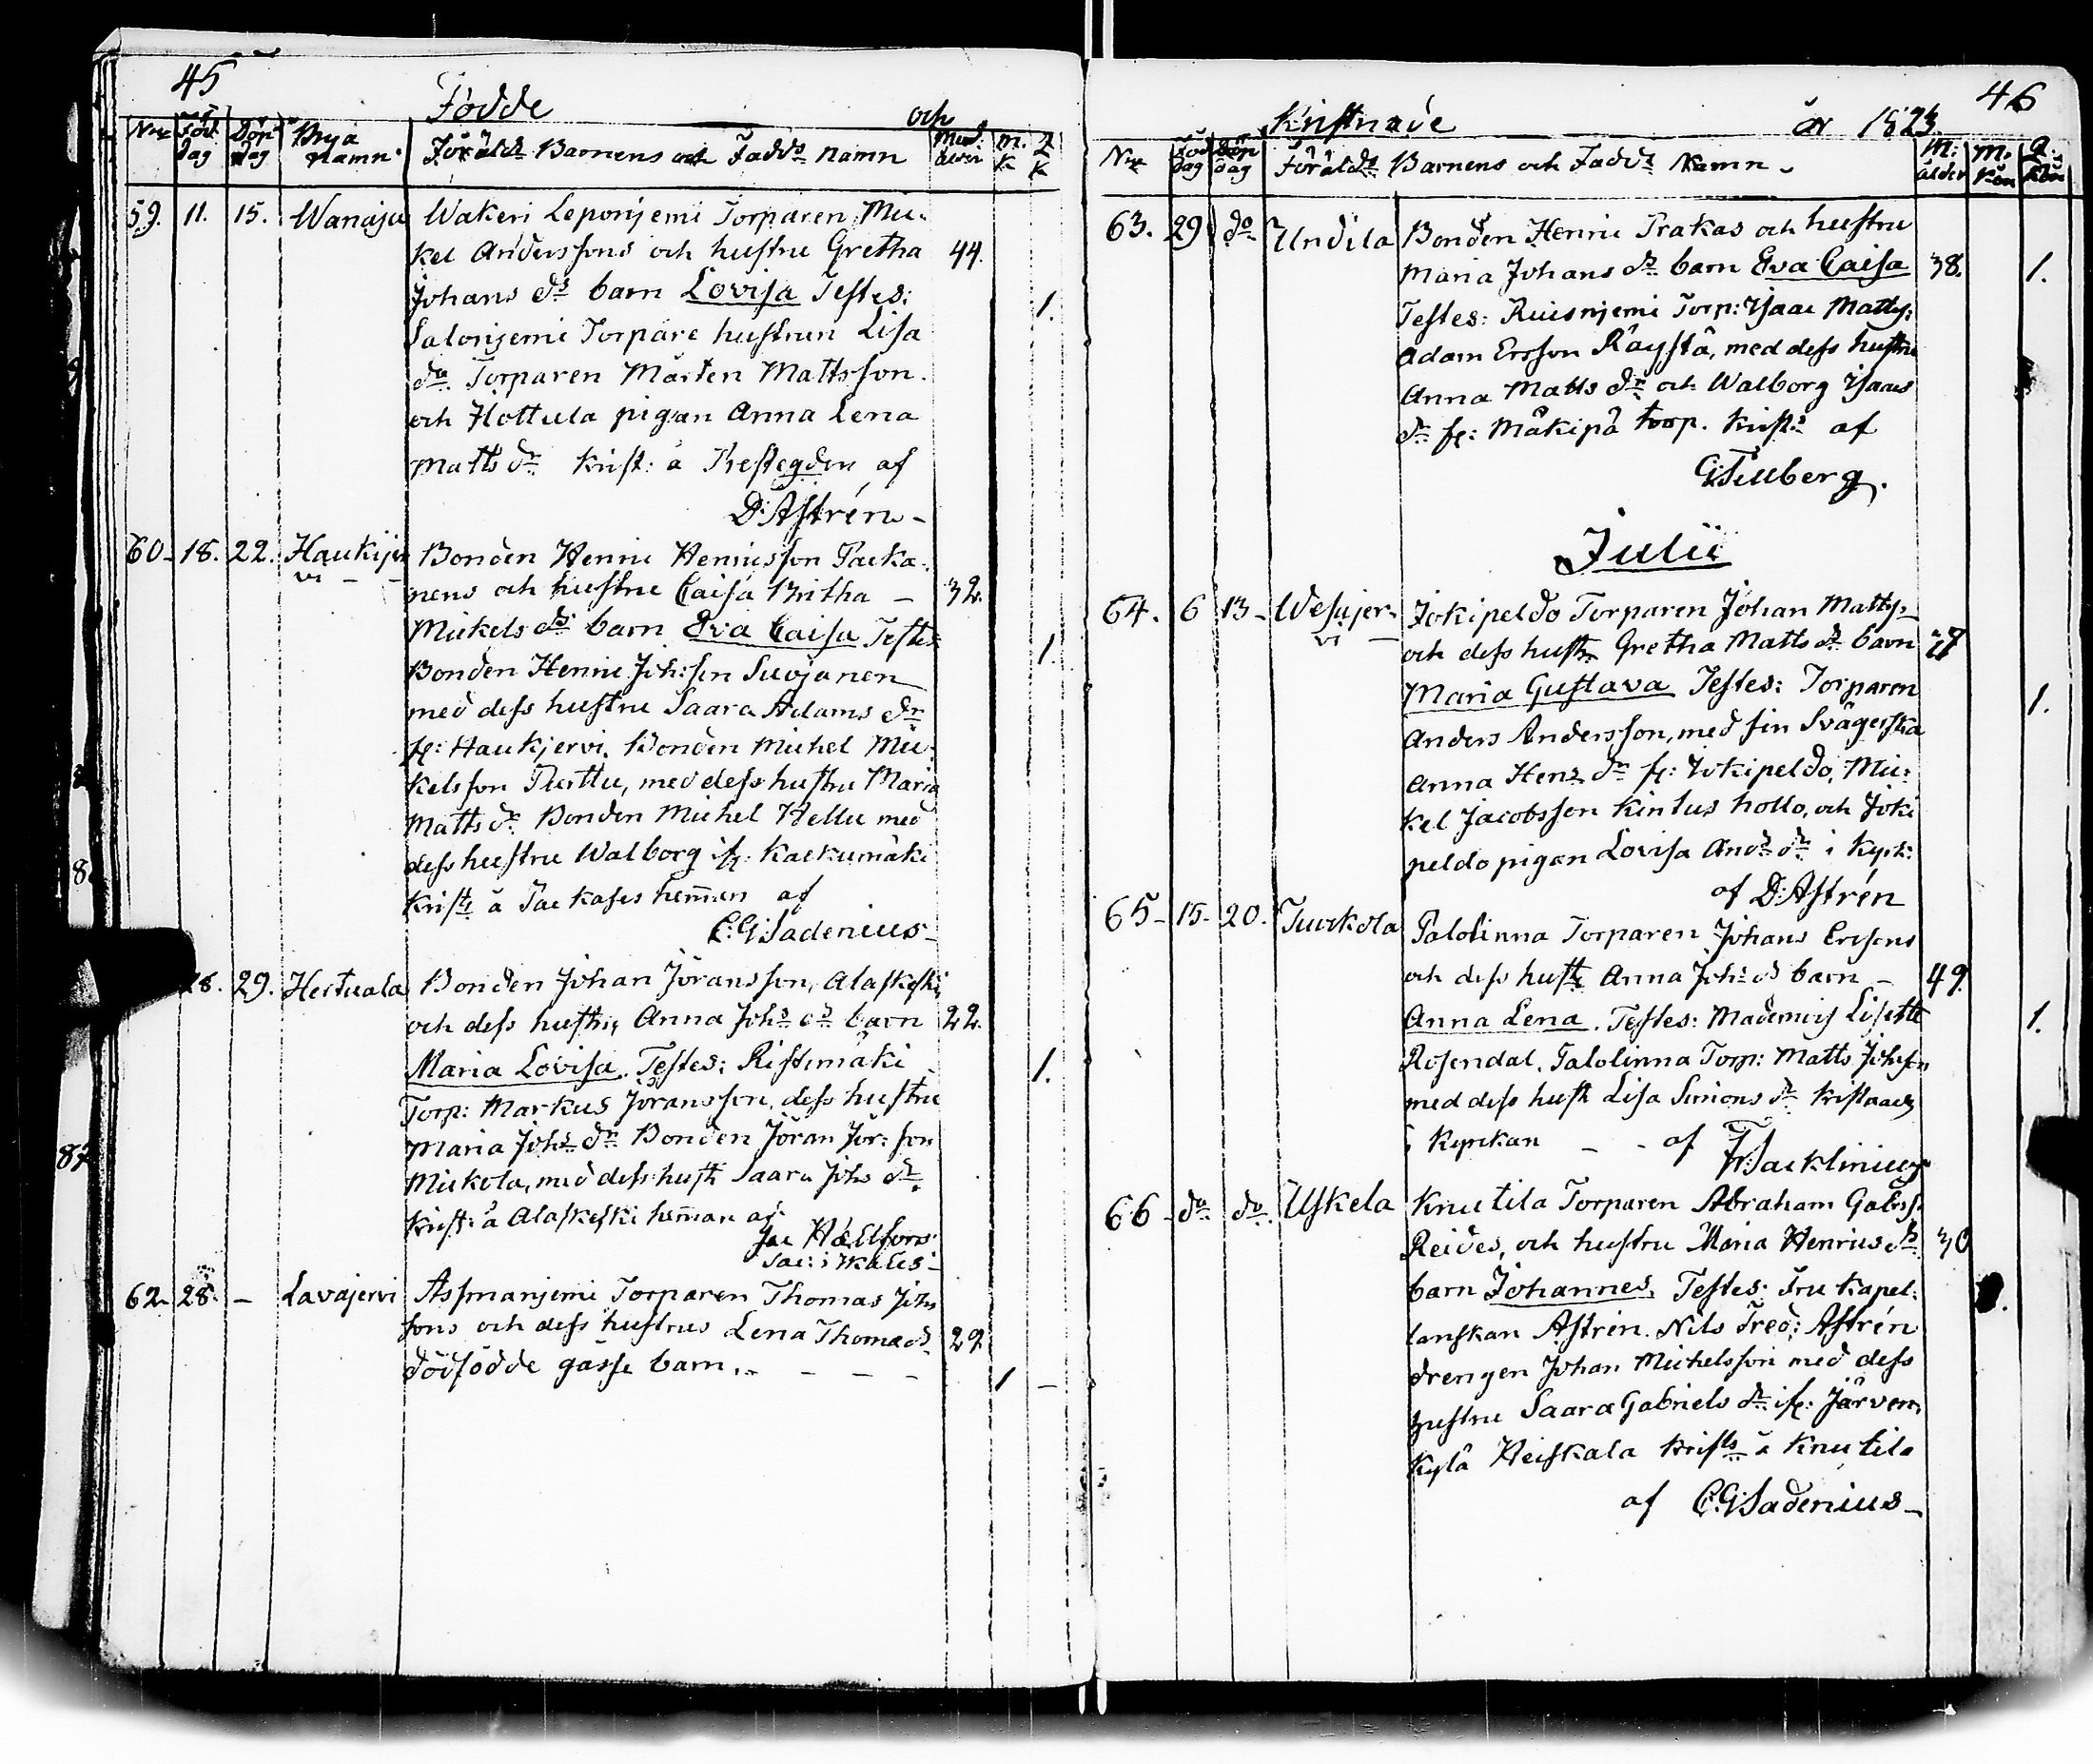 45
Födde och
N:r Föd. dag Döp dag Byja namn Föräld:s Barnens och Fadd:s namn Mod. ålder M. K Q K
59. 11. 15. Wanaja Wakeri Leponjemi Torparen Mic-
kel Anderssons och hustru Gretha 44.
Johans d:s barn Lovisa Testes: 1.
Salonjemi Torpare hustrun Lisa
d:o Torparen Mårten Mattsson.
och Hottula pigan Anna Lena
Matts d:r Krist: å Prestegden af
D: Astrén -
60 - 18. 22. Haukijer Bonden Henric Henricsson Packa-
vi - - nens och hustru Caisa Britha - 32.
Mickels d:s barn Eva Caisa Testes 1.
Bonden Henric Joh:son Suojanen
med dess hustru Saara Adams d:r
fr: Haukjervi. Bonden Michel Mic-
kelsson Turttu, med dess hustru Maria
Matts d:r Bonden Michel Hellu med
dess hustru Walborg ifr: Kaekumäki
Krist: å Packases hemman af
C:G:Sadenius -
28. 29. Hertuala Bonden Johan Jöransson, Alaskeski
och dess hustru, Anna Joh:s d:s barn 22.
Maria Lovisa. Testes: Ristimäki 1.
Torp: Markus Jöransson, dess hustru
Maria Joh:s d:r Bonden Jöran Jör:son
Mickola, med dess hust: Saara Johs d:r
Krist: å Alaskeski hemman af
Jac Hällfors
Sac: i Kalis -
62. 28. - Lavajervi Assmanjemi Torparen Thomas Johs
sons och dess hustrus Lena Thomæ d:s 29
dödfödde gosse barn. - - - 1 -
46
Kristnade år 1823.
N:r Föd dag Döp dag Föräld:s Barnens och Fadd:s Namn. M: ålder M. Kön Q: Kön
63. 29 d:o Undila Bonden Henric Prakas och hustru
Maria Johans d:s barn Eva Caisa 38. 1.
Testes: Ruisnjemi Torp: Isaac Matts:
Adam Ersson Räystä, med dess hustru
Anna Matts d:r och Walborg Isaacs
d:r fr: Mäkipä torp. Krist:s af
G:Tillberg.
Julii
64. 6 13 - Wesajer- Jokipeldo Torparen Johan Matts: -
vi - och dess hust: Gretha Matts d:s barn 27
Maria Gustava Testes: Torparen 1.
Anders Andersson, med sin Svägerska
Anna Hen:s d:r fr: Jokipeldo, Mic-
kel Jacobsson Kintus hollo, och Joki
peldo pigan Lovisa And:s d:r i Kyrk:
af D: Astrén
65 - 15 - 20. Tuurkola Palolinna Torparen Johans Ersons
och dess hust: Anna Joh:s d:s barn - 49.
Anna Lena. Testes: Mademois Lisette 1.
Rosendal. Palolinna Torp: Matts Johson
med dess hust: Lisa Simons d:r kristnad
i Kyrkan - - af Fr:Sacklinius
66 - d:o d:o Uskela Knutila Torparen Abraham Gabrs:
Reides, och hustru Maria Henrics d:s 30
barn Johannes. Testes: Fru Kapel-
lanskan Astrén. Nils Fred: Astrén
drengen Johan Michelsson med dess
hustru Saara Gabriels d:r ifr: Järven-
kylä Heiskala krist:s å Knutila
af C:G:Sadenius -